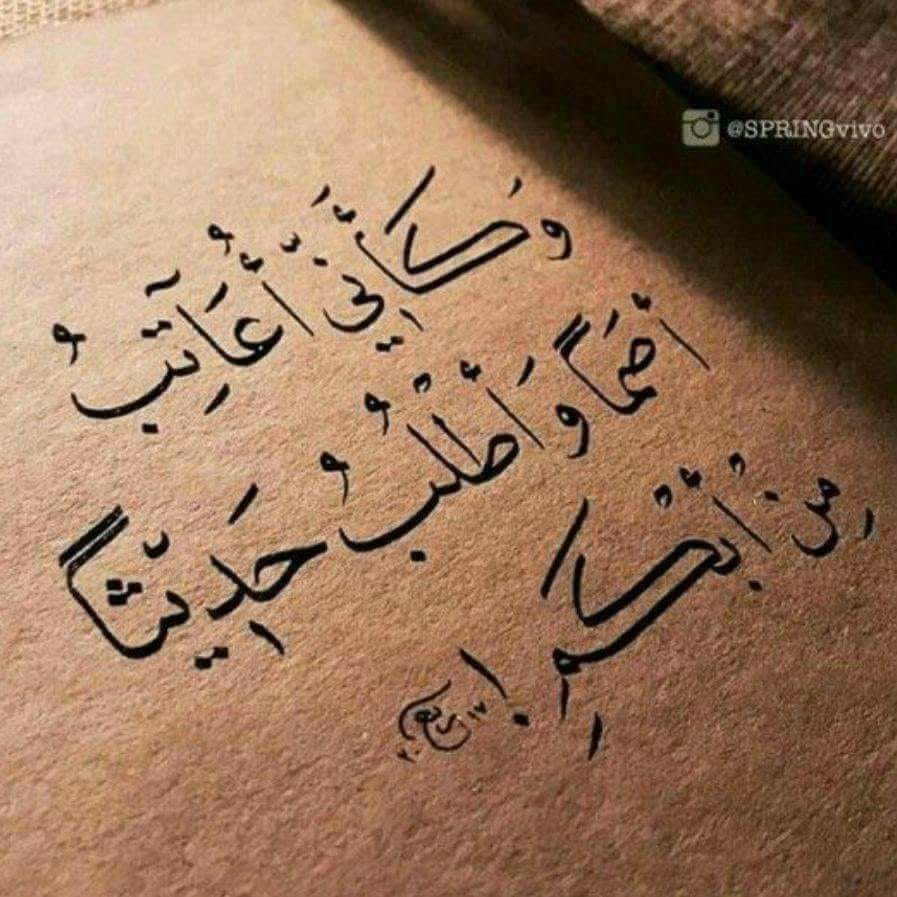 @SPRINGvivo
وَكَأَنِّي أُعَاتِبُ
أصَمًّا وَأطْلُبُ
حَدِيثًا
مِنْ أبْكَمِ !